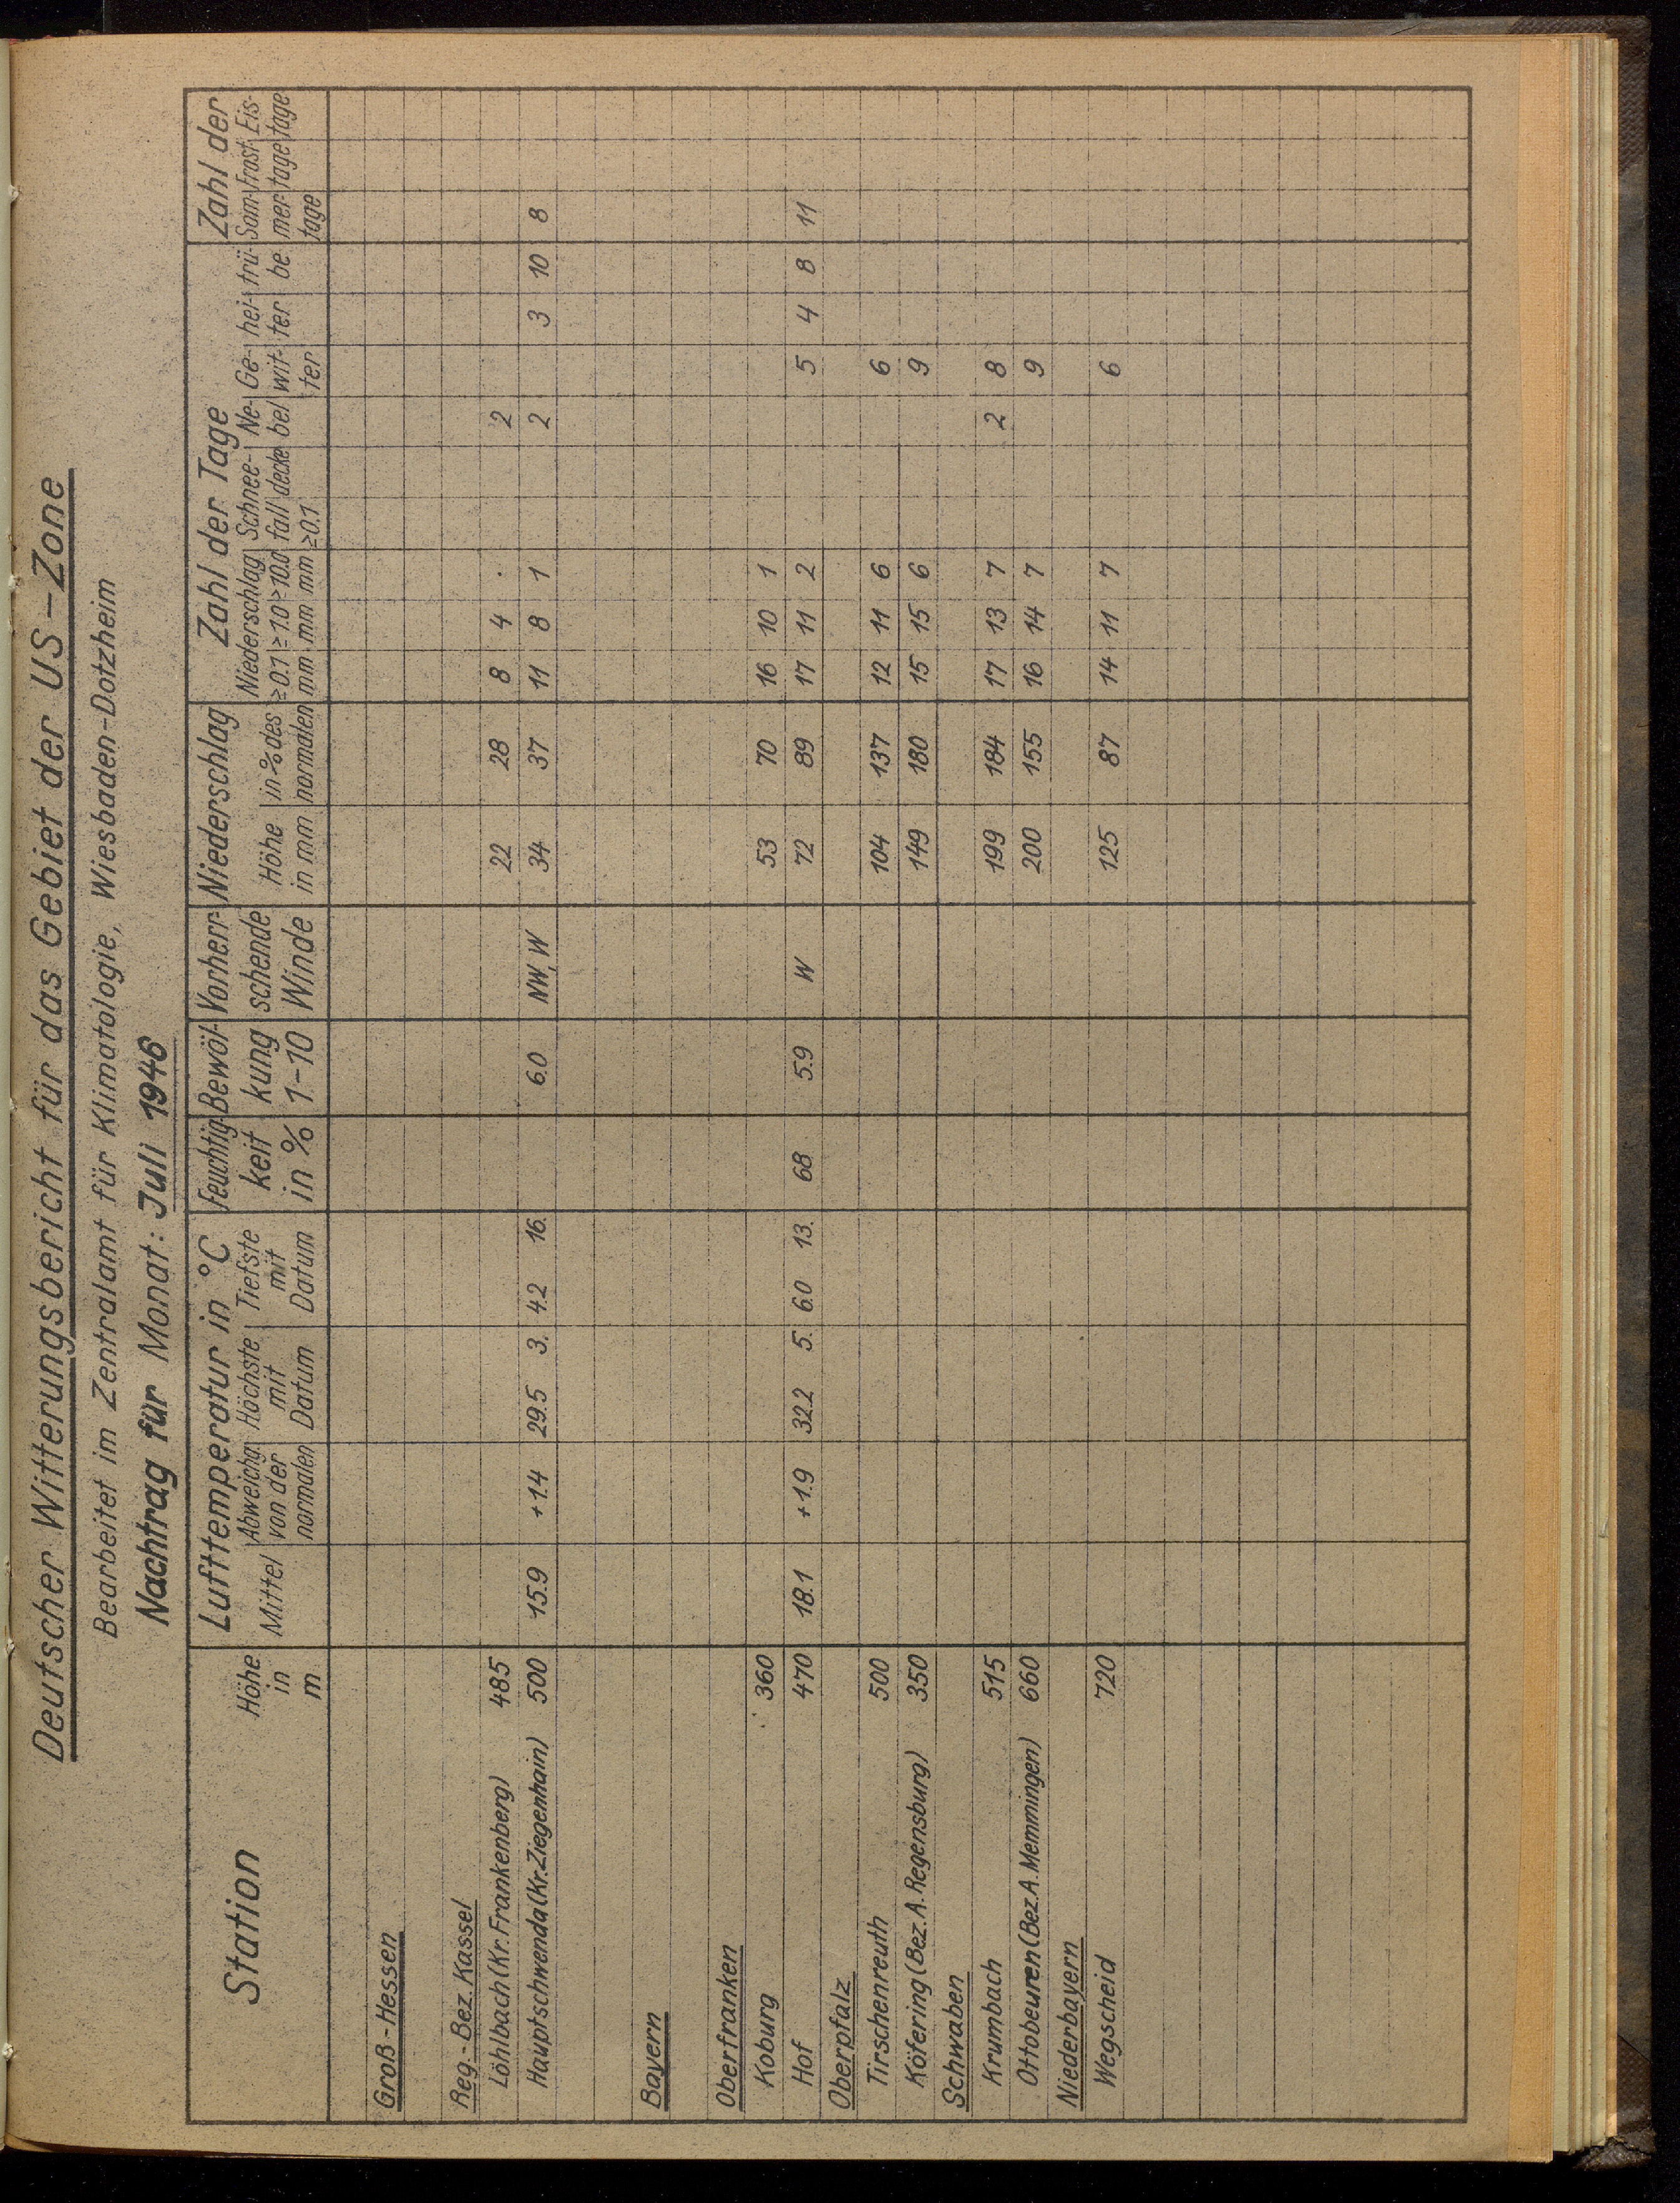 Deutscher Witterungsbericht für das Gebiet der US-Zone
Bearbeitet im Zentralamt für Klimatologie, Wiesbaden-Dotzheim
Nachtrag für Monat: Juli 1946
Station Höhe in m Lufttemperatur in °C Feuchtig- keit in % Bewöl- kung 1-10 Vorherr- schende Winde Niederschlag Zahl der Tage Zahl der
Mittel Abweichg. von der normalen Höchste mit Datum Tiefste mit Datum Höhe in mm in % des normalen Niederschlag ≥0.1 mm ≥1.0 mm ≥10.0 mm Schnee- fall ≥0.1 decke Ne- bel Ge- wit- ter hei- ter trü- be Som- mer- tage Frost- tage Eis- tage
Groß-Hessen
Reg.-Bez. Kassel
Löhlbach (Kr. Frankenberg) 485 22 28 8 4 . 2
Hauptschwenda (Kr. Ziegenhain) 500 15.9 +1.4 29.5 3. 4.2 16. 6.0 NW, W 34 37 11 8 1 2 3 10 8
Bayern
Oberfranken
Koburg 360 53 70 16 10 1
Hof 470 18.1 +1.9 32.2 5. 6.0 13. 68 5.9 W 72 89 17 11 2 5 4 8 11
Oberpfalz
Tirschenreuth 500 104 137 12 11 6 6
Köfering (Bez. A. Regensburg) 350 149 180 15 15 6 9
Schwaben
Krumbach 515 199 184 17 13 7 2 8
Ottobeuren (Bez. A. Memmingen) 660 200 155 16 14 7 9
Niederbayern
Wegscheid 720 125 87 14 11 7 6